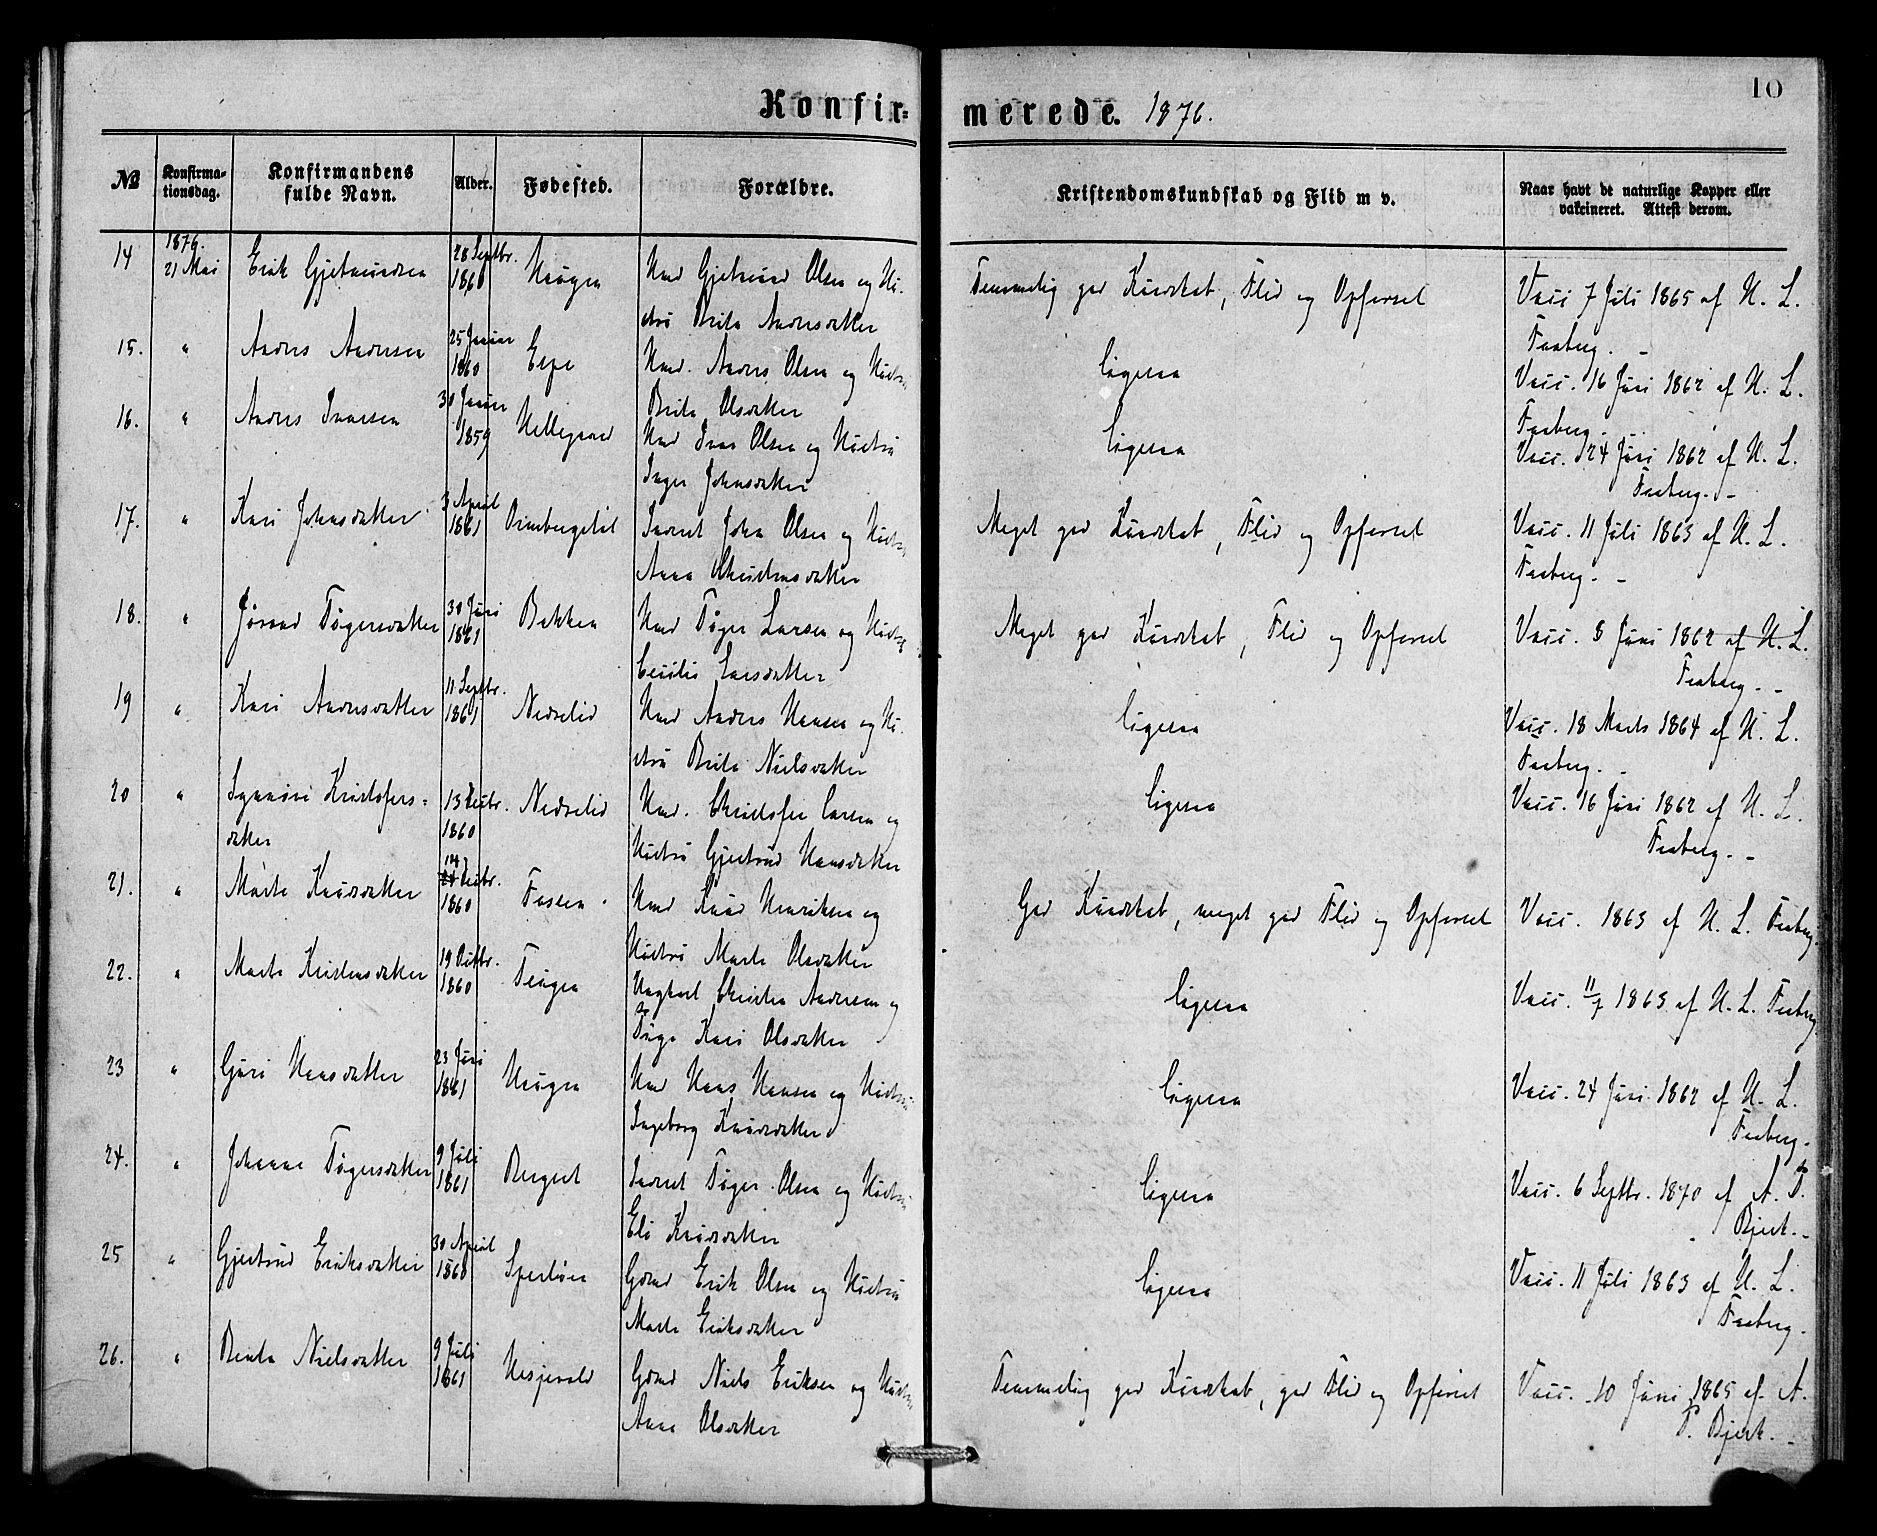 10
Konfir= merede. 1876.
№ Konfirma- tionsdag. Konfirmandens fulde Navn. Alder. Fødested. Forældre. Kristendomskundskab og Flid m v. Naar havt de naturlige Kopper eller vakcineret. Attest derom.
14 1876. 21 Mai Erik Gjetmundsen 28 Septbr. 1860 Haugen Hmd Gjetmund Olsen og Hu-
stru Brita Andersdatter
Temmelig god Kundskab, Flid og Opførsel Vacc 7 Juli 1865 af H. L.
Faaberg. -
15. " Anders Andersen 25 Januar 1860 Espe Hmd. Anders Olsen og Hustru
Brita Olsdatter
ligesaa Vacc. 16 Juni 1862 af H. L.
Faaberg. -
16. " Anders Ivarsen 30 Januar 1859 Hellegaard Hmd Ivar Olsen og Hustru
Inger Johnsdatter
ligesaa Vacc. 24 Juni 1862 af H. L.
Faaberg. -
17. " Kari Johnsdatter 3 April 1861 Inderst John Olsen og Hustru
Anna Christensdatter
Meget god Kundskab, Flid og Opførsel Vacc. 11 Juli 1863 af H. L.
Faaberg. -
18. " Jørand Tøgersdatter 30 Juni 1861 Bakken Hmd Tøger Larsen og Hustru
Cecilie Larsdatter
Meget god Kundskab, Flid og Opførsel Vacc. 8 Juni 1862 af H. L.
Faaberg. -
19 " Kari Andersdatter 11 Septbr. 1861 Nedrelid Hmd Anders Hansen og Hu-
stru Brita Nielsdatter
ligesaa Vacc. 18 Marts 1864 af H. L.
Faaberg. -
20 " Synneve Kristofers=
datter
13 Decbr. 1860 Nedrelid Hmd. Christofer Larsen og
Hustru Gjertrud Hansdatter
ligesaa Vacc. 16 Juni 1862 af H. L.
Faaberg. -
21. " Marte Knudsdatter 14 Decbr. 1860 Fossen Hmd Knud Henriksen og
Hustru Marte Olsdatter
God Kundskab, meget god Flid og Opførsel Vacc. 1863 af H. L. Faaberg.
22. " Marte Kristensdatter 19 Octbr. 1860 Haugen Ungkarl Christen Andersen og
Pige Kari Olsdatter
ligesaa Vacc. 11/7 1863 af H. L. Faaberg
23 " Guri Hansdatter 23 Juni 1861 Haugen Hmd Hans Hansen og Hustru
Ingeborg Knudsdatter
ligesaa Vacc. 24 Juni 1862 af H. L.
Faaberg.
24. " Johanne Tøgersdatter 9 Juli 1861 Berget Inderst Tøger Olsen og Hustru
Eli Knudsdatter
ligesaa Vacc. 6 Septbr. 1870 af A. P.
Bjerk. -
25 " Gjertrud Eriksdatter 30 April 1860 Gbmd Erik Olsen og Hustru
Marte Eriksdatter
ligesaa Vacc. 11 Juli 1863 af H. L.
Faaberg.
26. " Benta Nielsdatter 9 Juli 1861 Hesjevold Gbmd Niels Eriksen og Hustru
Anna Olsdatter
Temmelig god Kundskab, god Flid og Opførsel Vacc. 10 Juni 1865 af A.
P. Bjerk. -